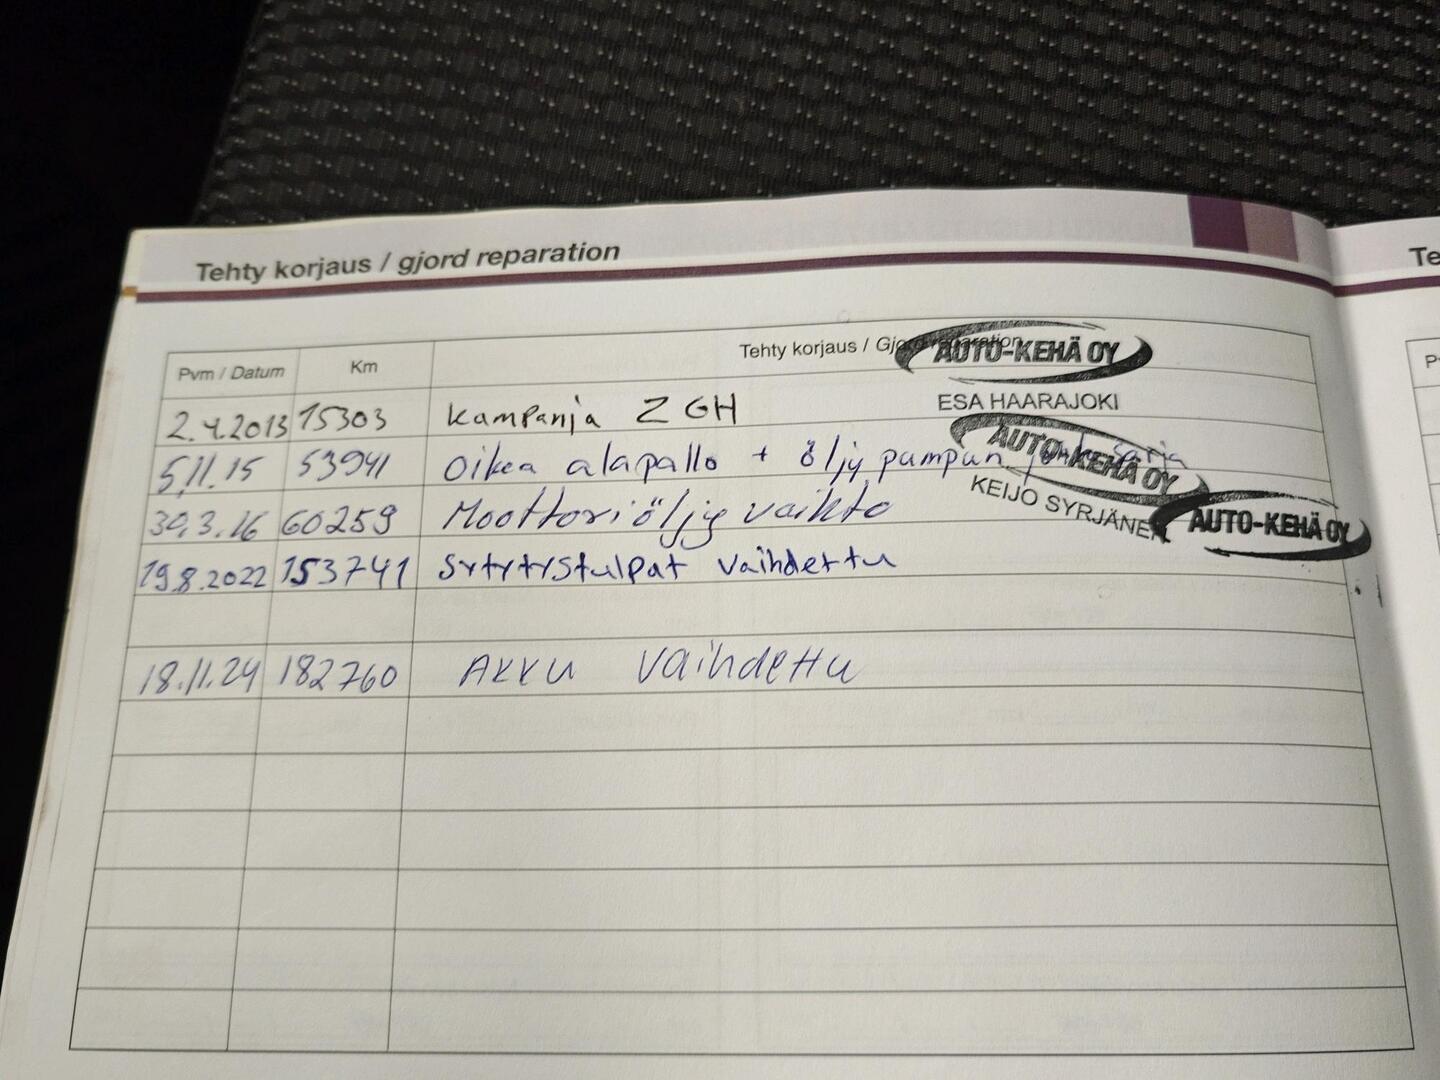 Tehty korjaus / gjord reparation
Te
Pvm / Datum Km Tehty korjaus / Gjord reparation
AUTO-KEHÄ OY
ESA HAARAJOKI
2.4.2013 15303 Kampanja ZGH
5.11.15 53941 Oikea alapallo + öljypumpun sarja
AUTO-KEHÄ OY
KEIJO SYRJÄNEN
30.3.16 60259 Moottoriöljy vaihto
AUTO-KEHÄ OY
19.8.2022 153741 Sytytystulpat vaihdettu
18.11.24 182760 AKKU vaihdettu
P